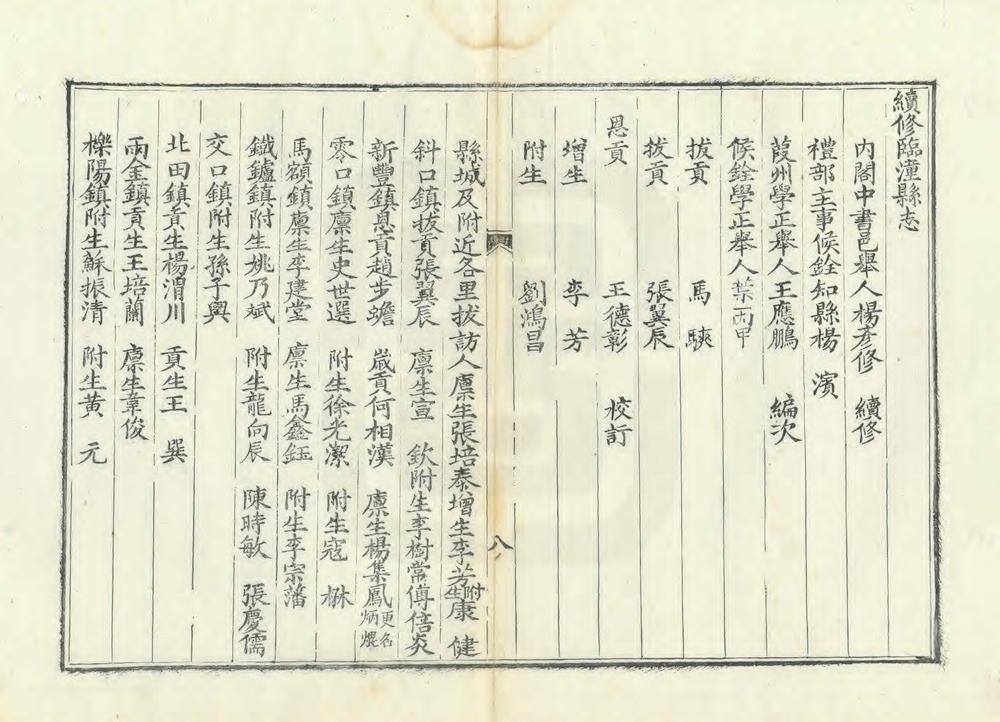 續修臨潼縣志
內閣中書邑舉人楊彥修　續修
禮部主事候銓知縣楊　濱
葭州學正舉人王應鵬　編次
候銓學正舉人葉丙甲
拔貢　馬　駚
拔貢　張翼辰
恩貢　王德彰　校訂
增生　李　芳
附生　劉鴻昌
八
縣城及附近各里拔訪人廩生張培泰增生李芳附生康　健
斜口鎮拔貢張翼辰　廩生宣　欽附生李樹棠傅倍炎
新豐鎮恩貢趙步蟾　歲貢何相漢　廩生楊集鳳更名炳焜
零口鎮廩生史世選　附生徐光潔　附生寇　楙
馬額鎮廩生李建堂　廩生馬鑫鈺　附生李宗藩
鐵鑪鎮附生姚乃斌　附生龍向辰　陳時敏　張慶儒
交口鎮附生孫子輿
北田鎮貢生楊渭川　貢生王　巽
雨金鎮貢生王培蘭　廩生韋俊
櫟陽鎮附生蘇振清　附生黃　元